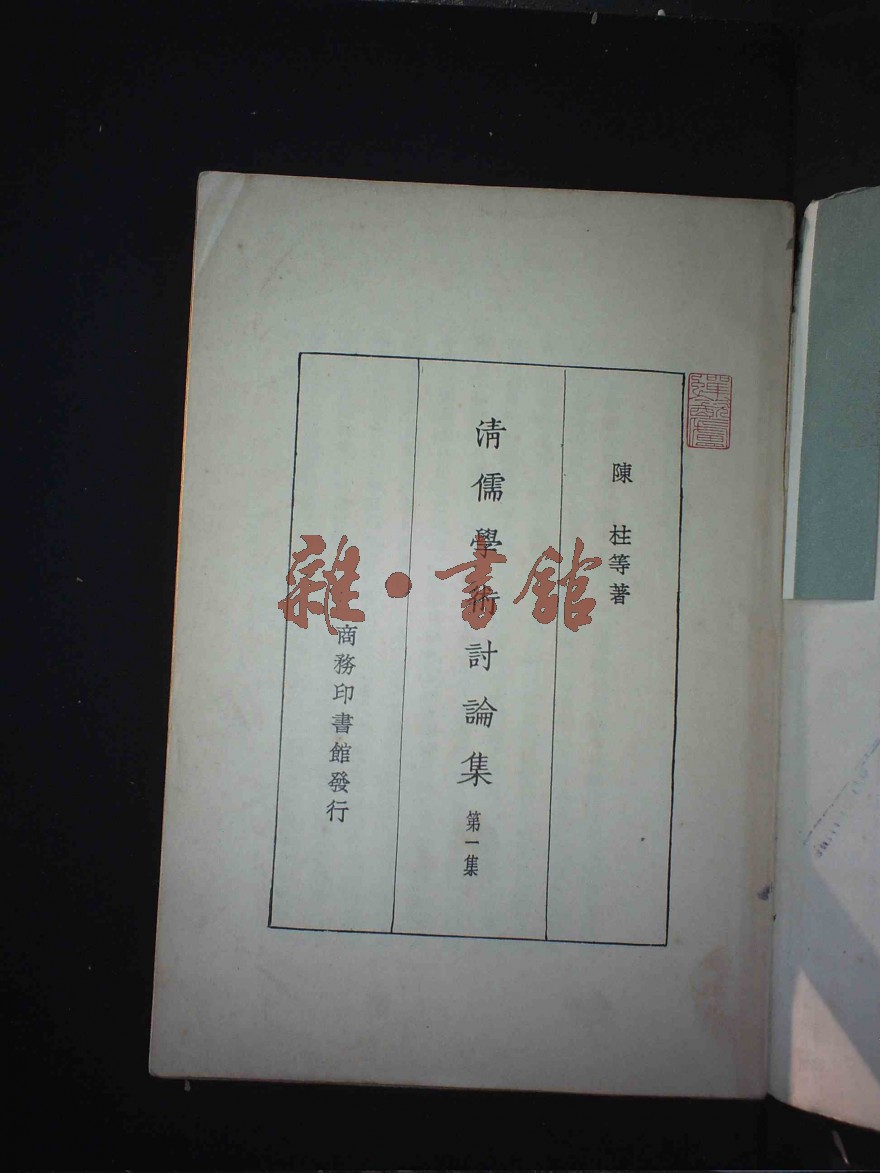 陳柱等著
清儒學術討論集 第一集
商務印書館發行
雜·書館